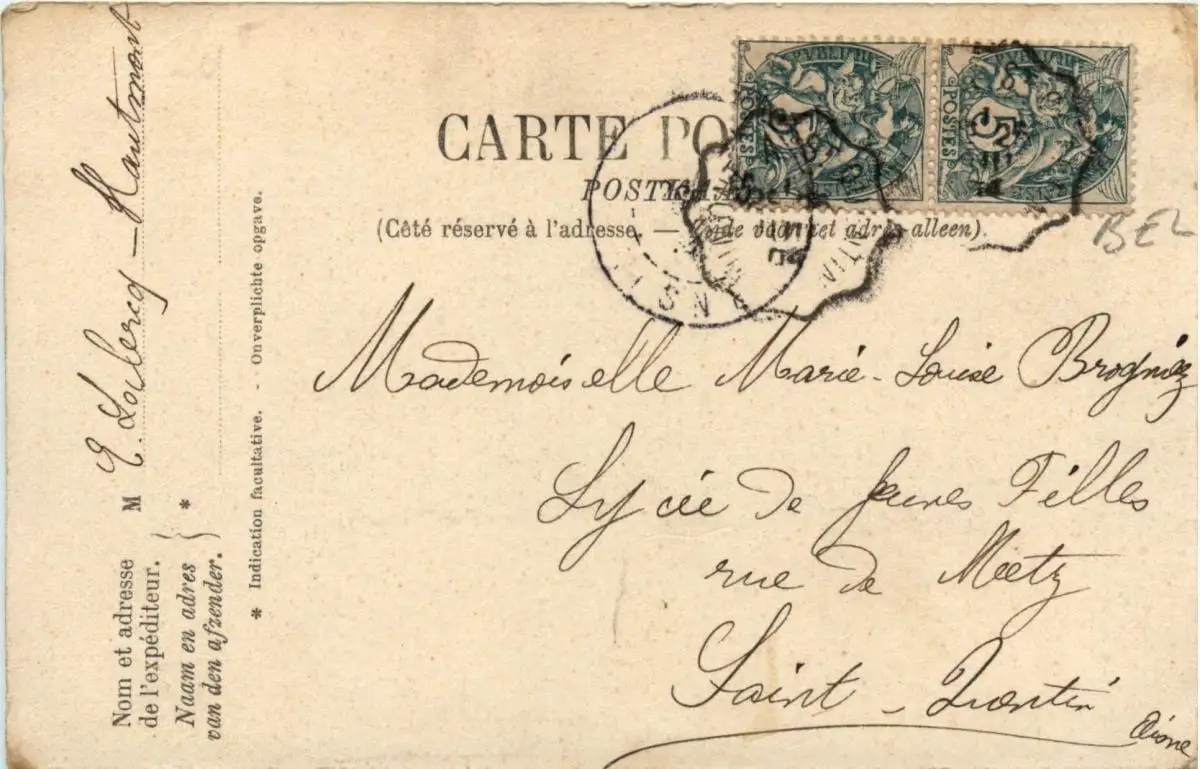 CARTE PO
POSTKAA
(Côté réservé à l'adresse. — Zijde voor het adres alleen).
POSTES 5
POSTES 5
BEL
Mademoiselle Marie-Louise Brogniez
Lycée de Jeunes Filles
rue de Metz
Saint-Quentin
Aisne
M E. Leclercq - Hautmont
Nom et adresse
de l'expéditeur.
Naam en adres
van den afzender.
*
* Indication facultative. - Onverplichte opgave.